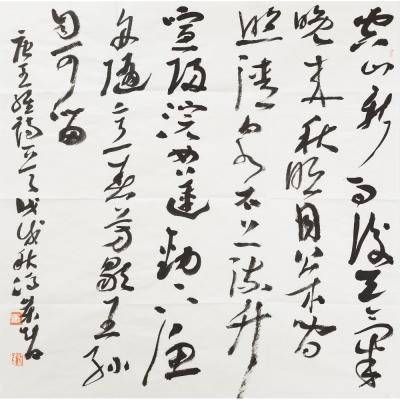 空山新雨後天氣
晚来秋明月松间
照清泉石上流竹
喧歸浣女蓮動下渔
舟隨意春芳歇王孫
自可留
唐王維詩一首戊戌秋